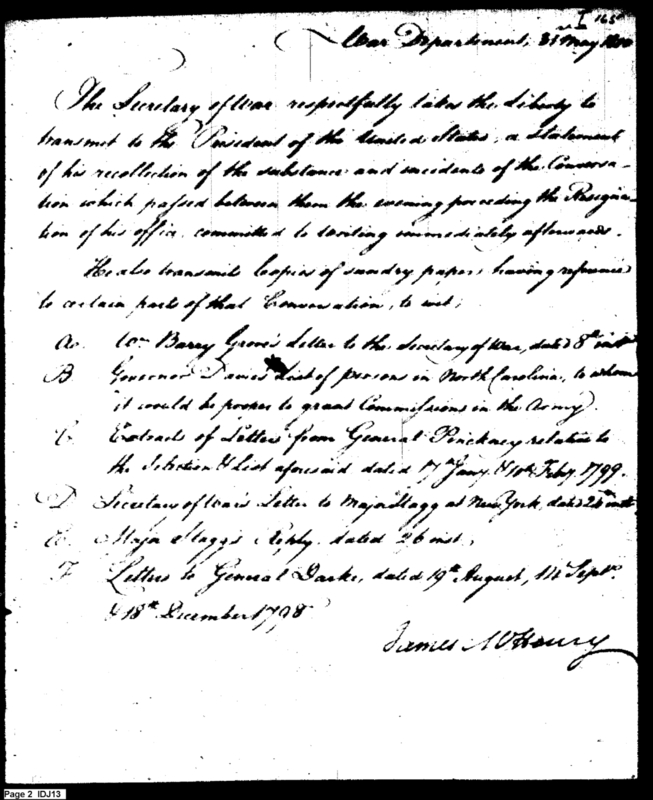 I 165
War Department, 31 May 1800
The Secretary of War respectfully takes the Liberty to
transmit to the President of the United States, a statement
of his recollection of the substance and incidents of the Conversa-
tion which passed between them the evening preceding the Resigna-
tion of his office, committed to writing immediately afterwards.
He also transmits Copies of sundry papers having reference
to certain parts of that Conversation, to wit;
A. Wm Barry Grove's Letter to the Secretary of War, dated 8th inst
B Governor Davie's List of persons in North Carolina, to whom
it would be proper to grant Commissions in the Army.
C. Extracts of Letters from General Pinckney relative to
the Selection & List aforesaid dated Jany & 10th Feby 1799.
D Secretary of War's Letter to Major Stagg at New York, dated inst
E. Major Stagg's Reply dated 26 inst,
F Letters to General Darke, dated 19th August, 14 Septr.
& 18th December 1798
James McHenry
Page 2 IDJ13